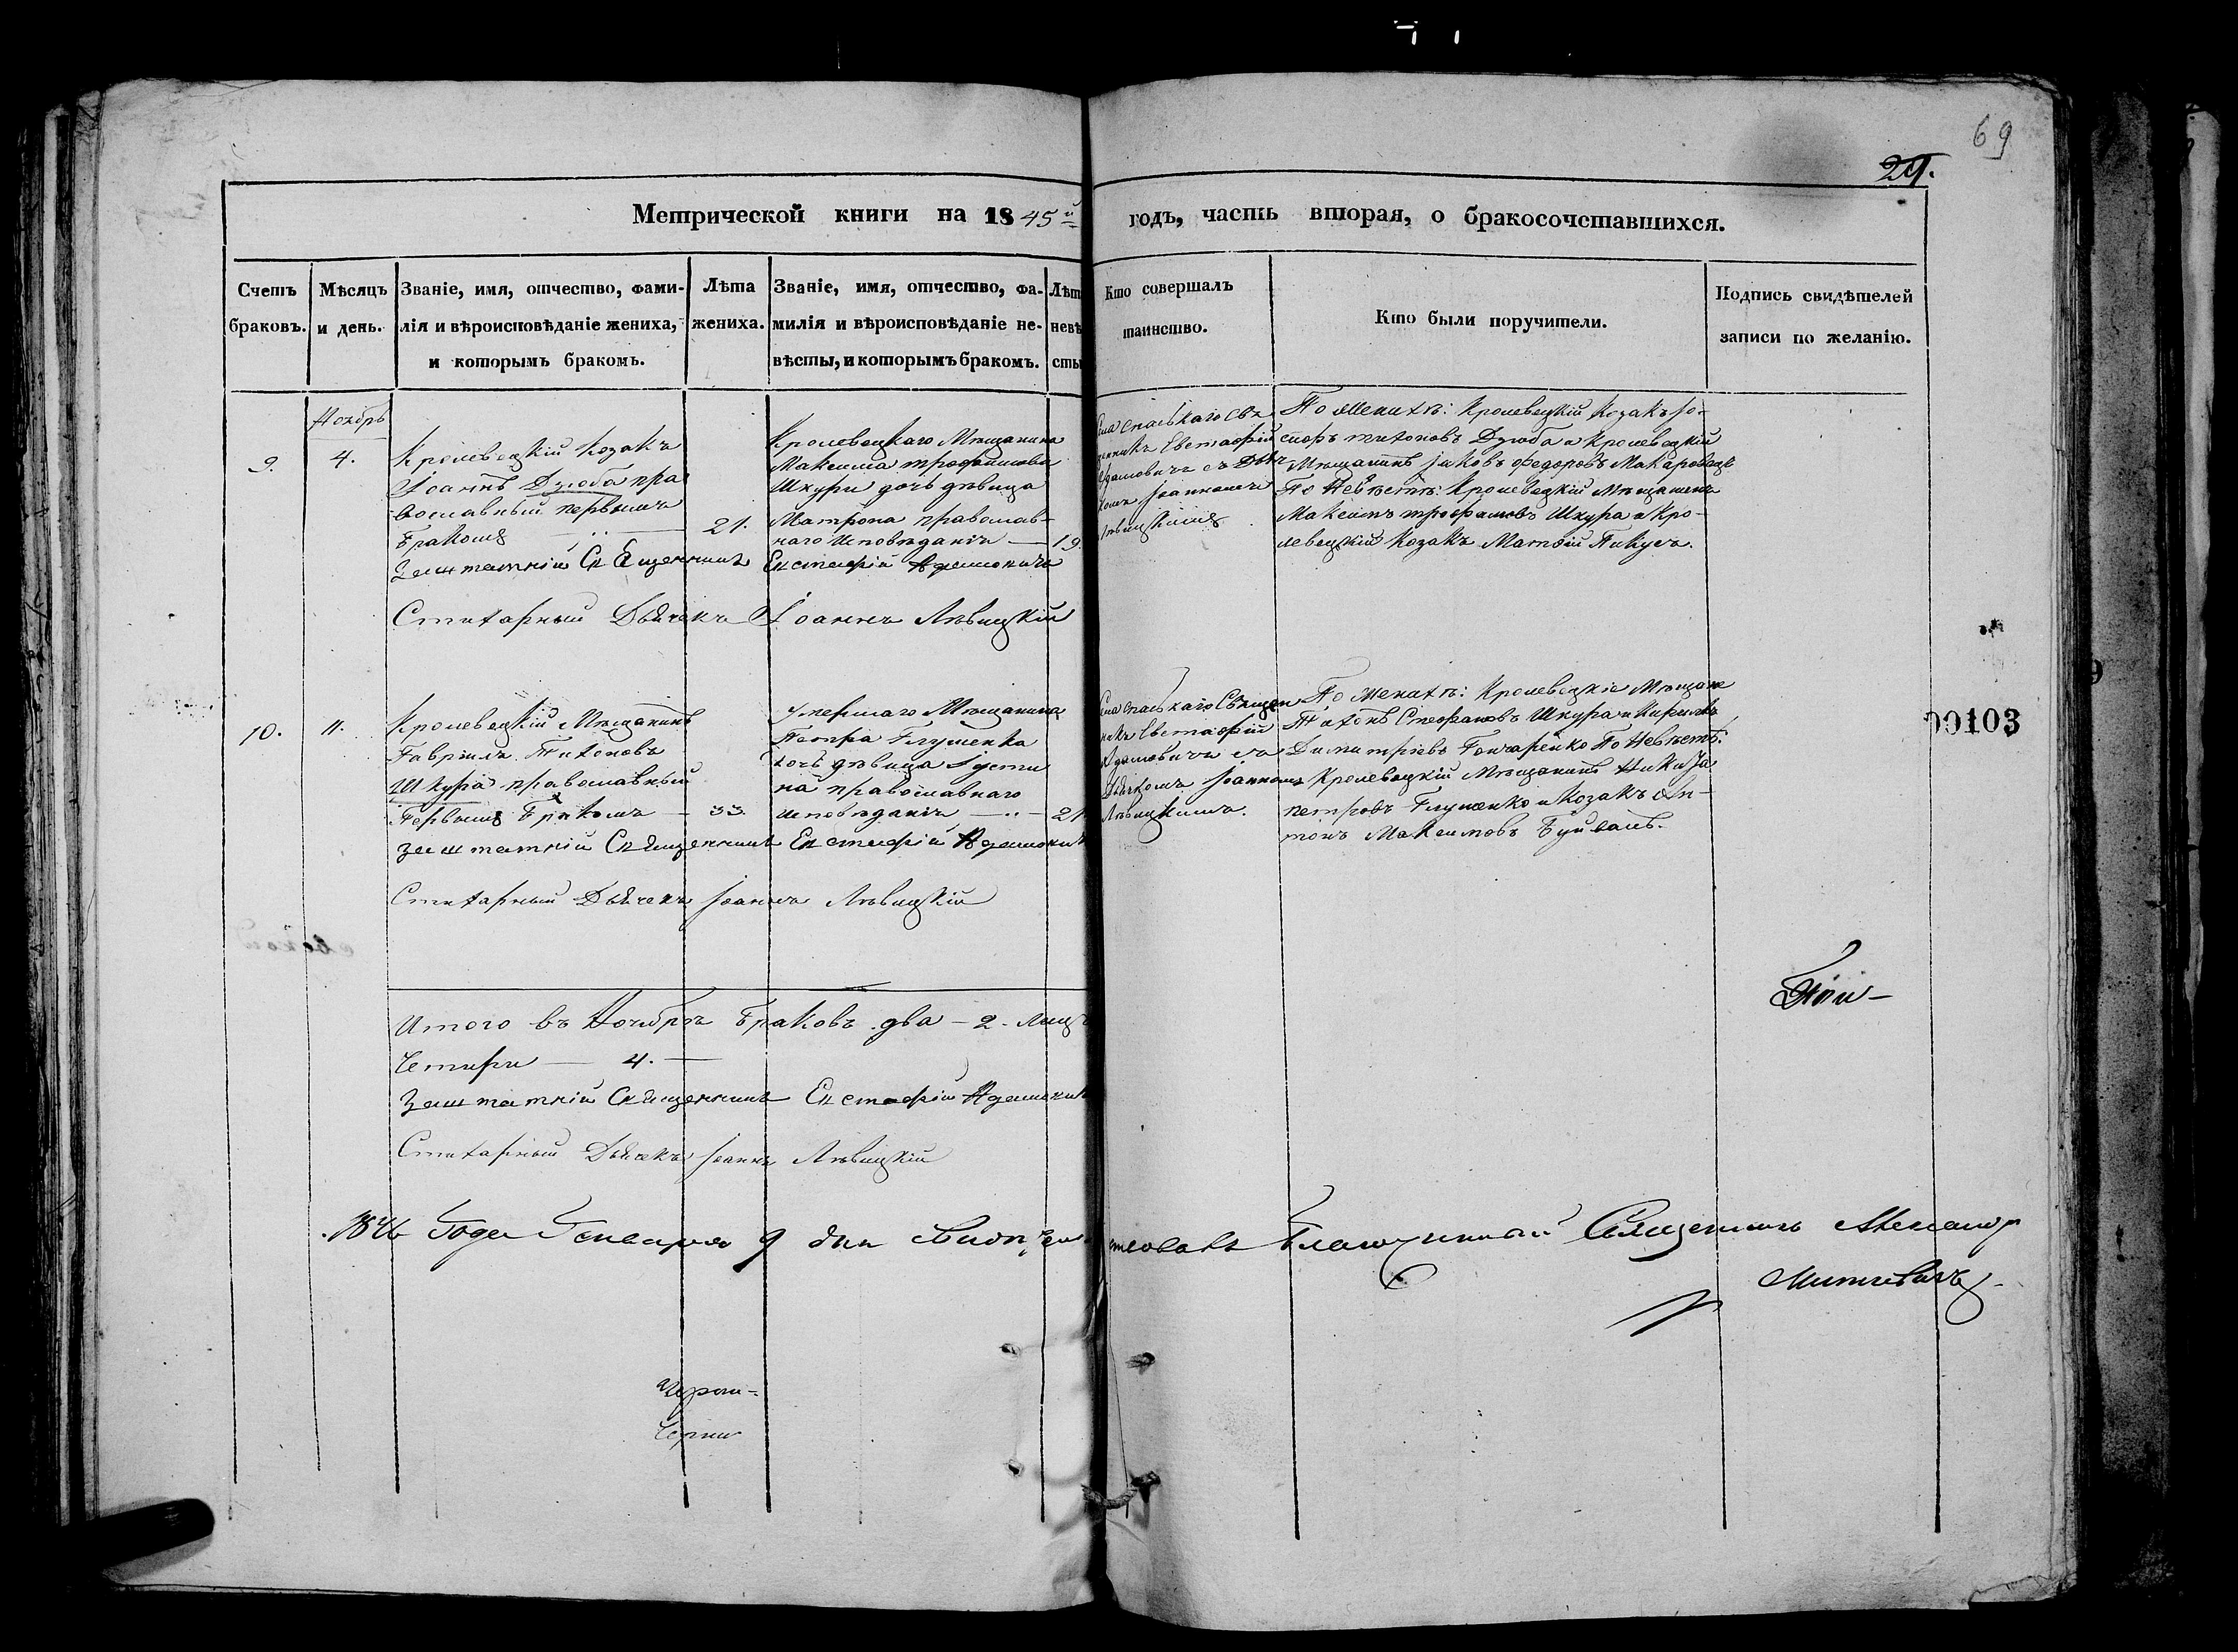 69
29.
Метрической книги на 1845й годъ, часть вторая, о бракосочетавшихся.
Счетъ браковъ.
Мѣсяцъ и день.
Званіе, имя, отчество, фами-
лія и вѣроисповѣданіе жениха,
и которымъ бракомъ.
Лѣта
жениха.
Званіе, имя, отчество, фа-
милія и вѣроисповѣданіе не-
вѣсты, и которымъ бракомъ.
Лѣт
невѣ
сты
Кто совершалъ
таинство.
Кто были поручители.
Подпись свидѣтелей
записи по желанію.
Ноябрь
9.
4.
Кролевецкій Козакъ
Іоаннъ Дзюба пра
вославный первымъ
бракомъ
21.
Кролевецкаго Мѣщанина
Максима трофимова
Шкури дочь дѣвица
Матрона православ-
наго исповѣданія
19.
Спаскаго Св
щенникъ Евстафій
Адамовичь съ Дяч
комъ Іоанномъ
Лѣвицкимъ
По Женихѣ: Кролевецкій Козакъ Іо-
сифъ тихоновъ Дзюба и Кролевецкій
Мѣщанинъ Іаковъ Федоровъ Макаровецъ
По Невѣстѣ: Кролевецкій Мѣщанинъ
Максимъ трофимовъ Шкура и Кро-
левецкій Козакъ Матѳій Пикусъ.
Заштатній Священникъ Евстафій Адамовичъ
Стихарный Дьячекъ Іоаннъ Лѣвицкій
10.
11.
Кролевецкій Мѣщанинъ
Гавріилъ Тихоновъ
Шкура православный
Первымъ Бракомъ
33.
Умершаго Мѣщанина
Петра Глущенка
дочь дѣвица Іусти
на православнаго
исповѣданія
21
Спаскаго Священ
никъ Евстафій
Адамовичь съ
Дьячкомъ Іоанномъ
Лѣвицкимъ.
По Женихѣ: Кролевецкіе Мѣщане
Тихонъ Стефановъ Шкура и Кирилъ
Димитріевъ Гончаренко По Невѣстѣ:
Кролевецкій Мѣщанинъ Никита
петровъ Глущенко и Козакъ Ан-
тонъ Максимовъ Буйвалъ.
заштатній Священникъ Евстафій Адамовичъ
Стихарный Дьячекъ Іоаннъ Лѣвицкій
00103
Итого въ Ноябрѣ браковъ два — 2. Лицъ
Четыри — 4.
Заштатній Священникъ Евстафій Адамович
Стихарный Дьячекъ Іоаннъ Лѣвицкій
1846 Года Генваря 9 дня Свидѣтельствовалъ Благочинный Священникъ Александръ